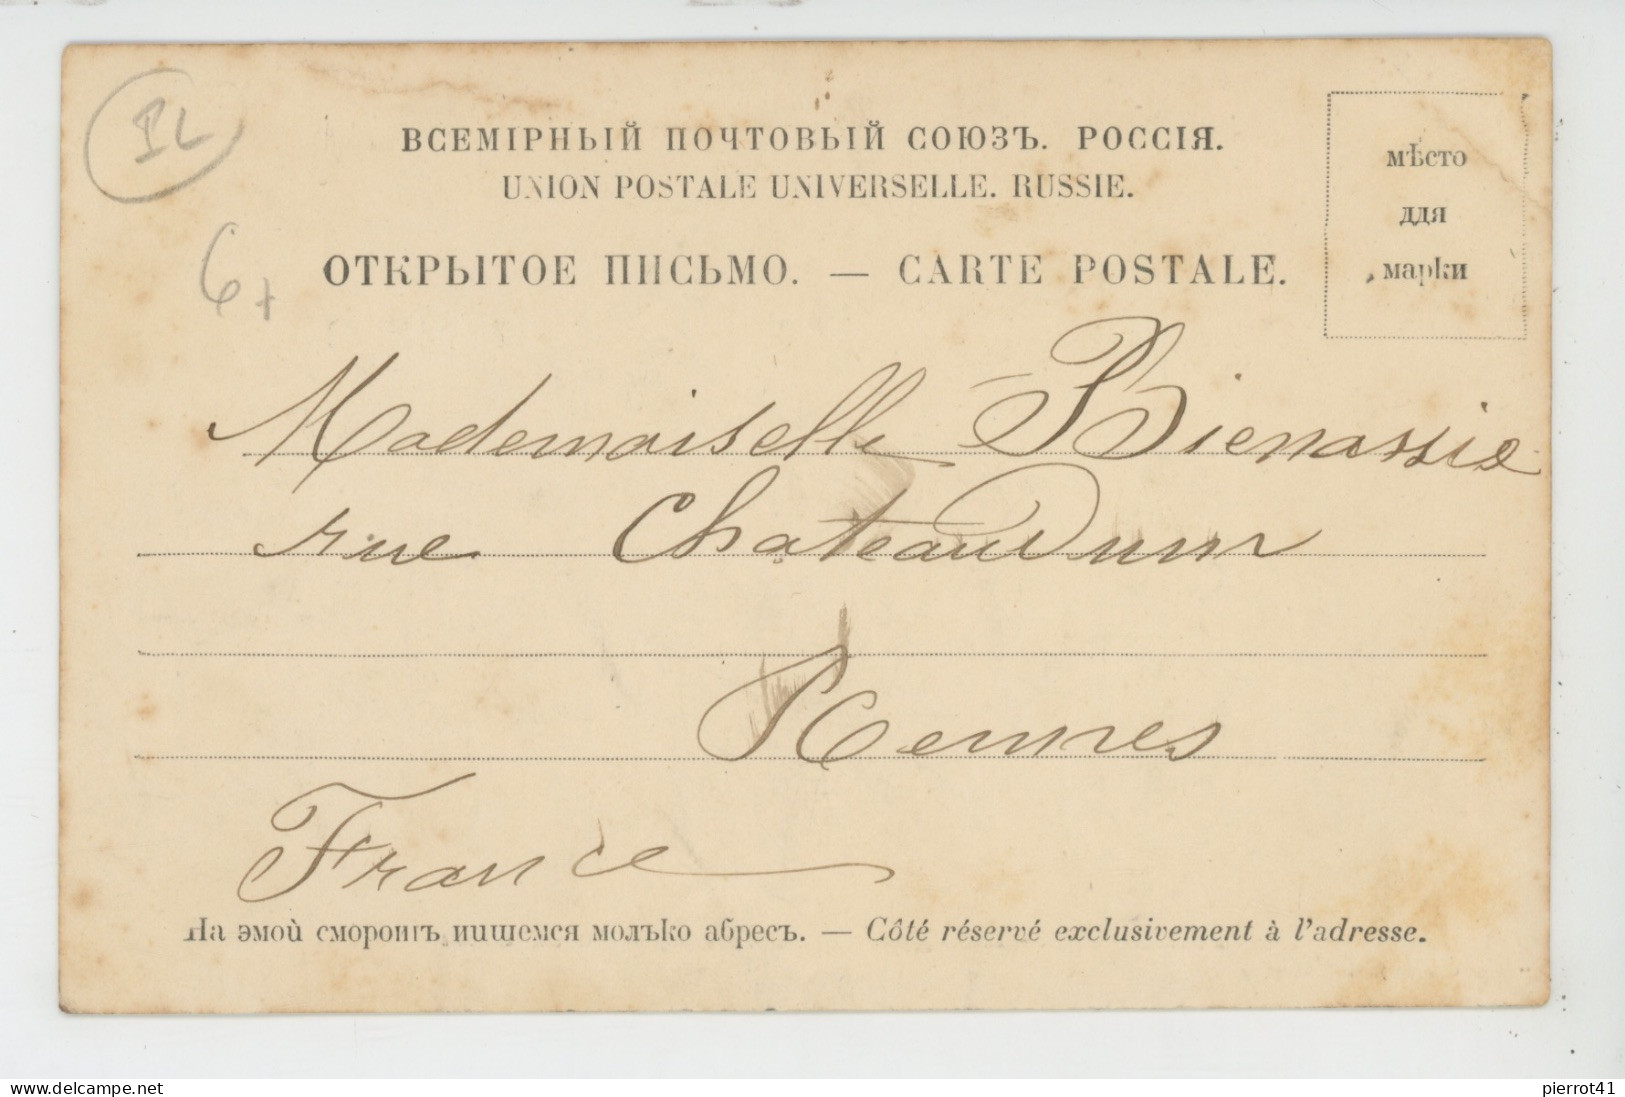 IL
6+
ВСЕМІРНЫЙ ПОЧТОВЫЙ СОЮЗЪ. РОССІЯ.
UNION POSTALE UNIVERSELLE. RUSSIE.
ОТКРЫТОЕ ПИСЬМО. — CARTE POSTALE.
мѣсто
ддя
марки
Mademoiselle Bienassie
rue Chateaudun
Rennes
France
На эмой смороить нишемся молъко абресъ. — Côté réservé exclusivement à l'adresse.
www.delcampe.net
pierrot41